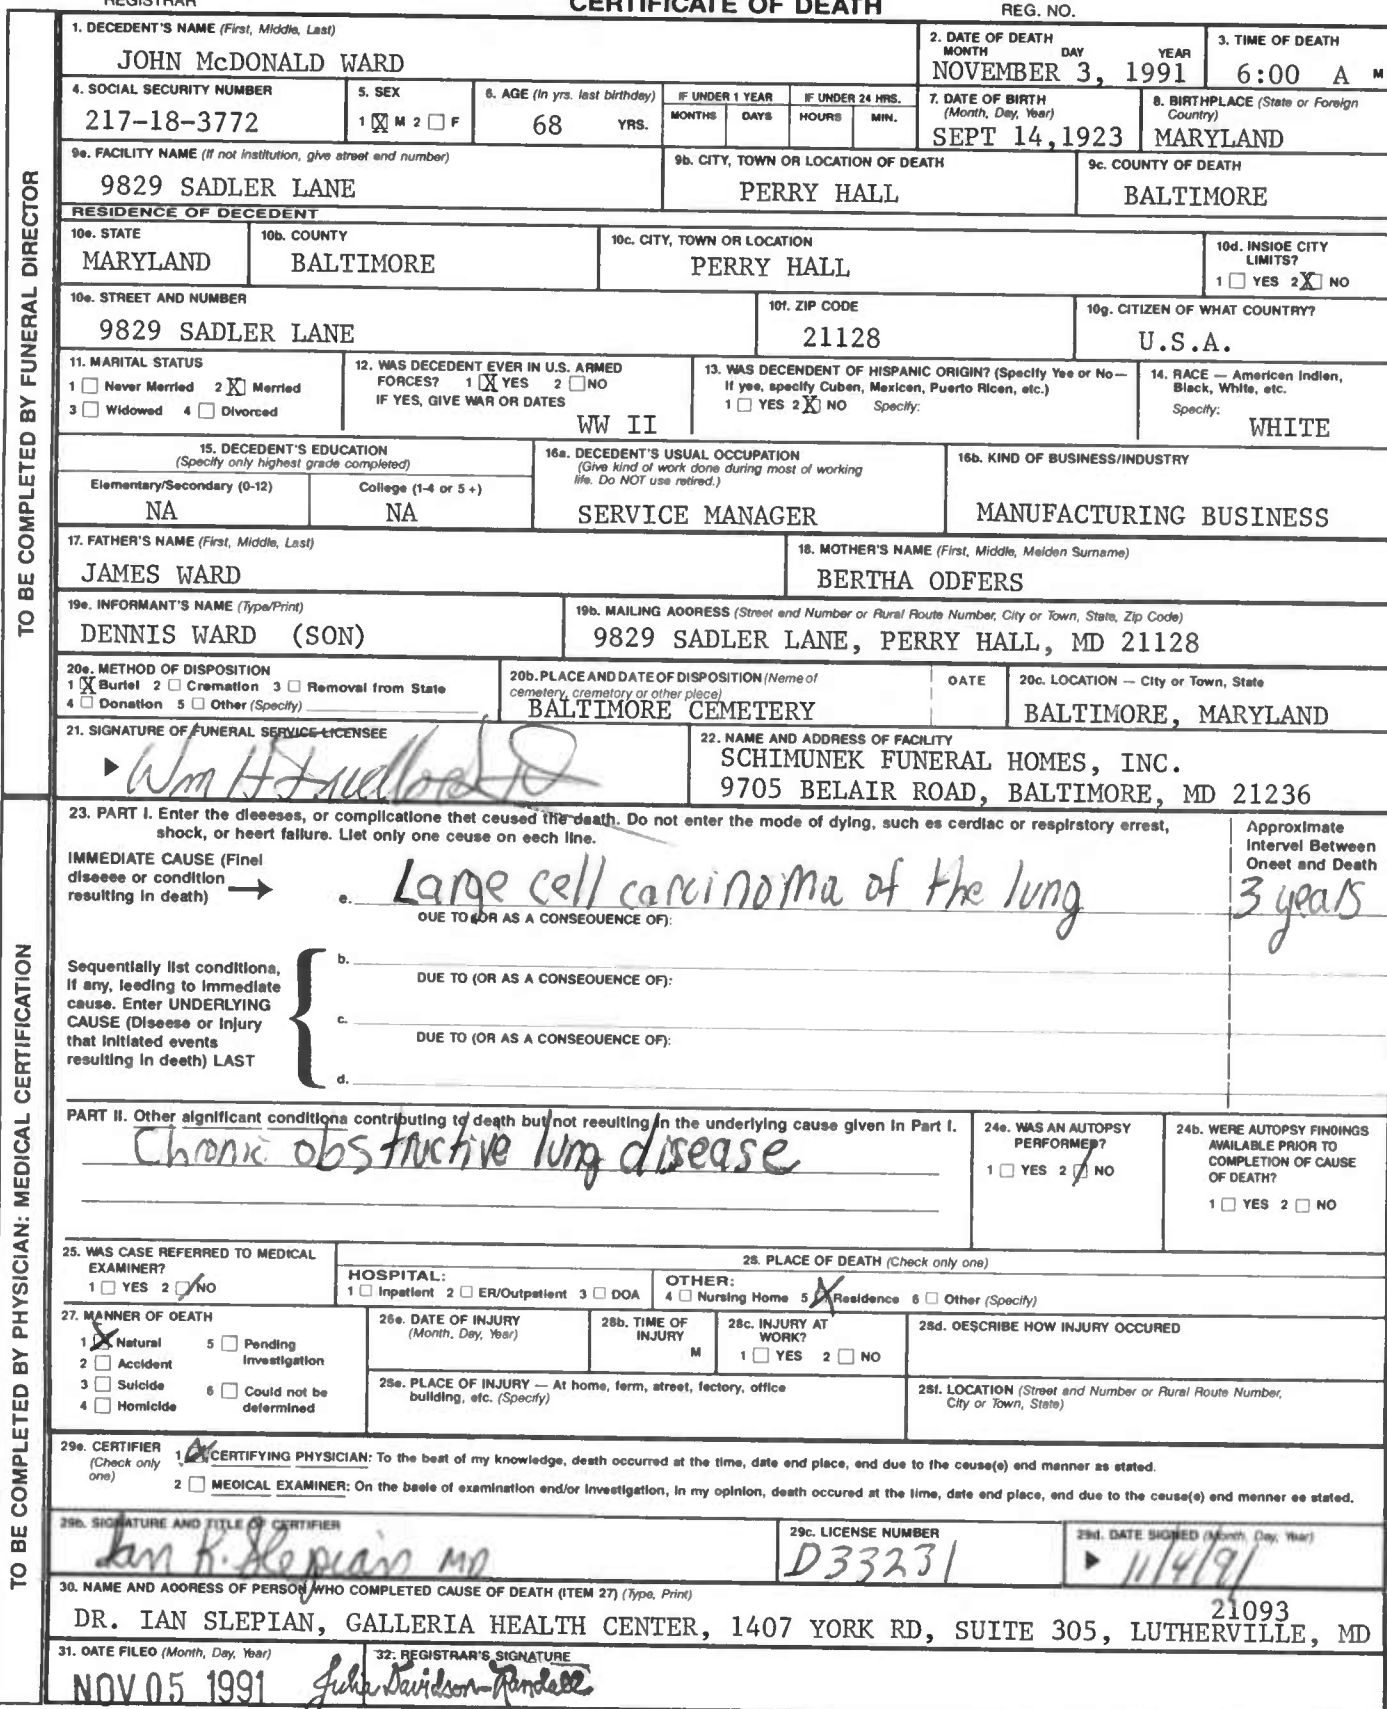 REGISTRAR
CERTIFICATE OF DEATH
REG. NO.
TO BE COMPLETED BY FUNERAL DIRECTOR
1. DECEDENT'S NAME (First, Middle, Last)
JOHN McDONALD WARD
2. DATE OF DEATH
MONTH DAY YEAR
NOVEMBER 3, 1991
3. TIME OF DEATH
6:00 A M
4. SOCIAL SECURITY NUMBER
217-18-3772
5. SEX
1 X M 2 F
6. AGE (In yrs. last birthday)
68 YRS.
IF UNDER 1 YEAR
MONTHS DAYS
IF UNDER 24 HRS.
HOURS MIN.
7. DATE OF BIRTH
(Month, Day, Year)
SEPT 14,1923
8. BIRTHPLACE (State or Foreign
Country)
MARYLAND
9e. FACILITY NAME (If not institution, give street end number)
9829 SADLER LANE
9b. CITY, TOWN OR LOCATION OF DEATH
PERRY HALL
9c. COUNTY OF DEATH
BALTIMORE
RESIDENCE OF DECEDENT
10e. STATE
MARYLAND
10b. COUNTY
BALTIMORE
10c. CITY, TOWN OR LOCATION
PERRY HALL
10d. INSIOE CITY
LIMITS?
1 YES 2 X NO
10e. STREET AND NUMBER
9829 SADLER LANE
10f. ZIP CODE
21128
10g. CITIZEN OF WHAT COUNTRY?
U.S.A.
11. MARITAL STATUS
1 Never Merried 2 X Merried
3 Widowed 4 Divorced
12. WAS DECEDENT EVER IN U.S. ARMED
FORCES? 1 X YES 2 NO
IF YES, GIVE WAR OR DATES
WW II
13. WAS DECENDENT OF HISPANIC ORIGIN? (Specify Yee or No—
If yee, specify Cuben, Mexicen, Puerto Ricen, etc.)
1 YES 2 X NO Specify:
14. RACE — Americen Indien,
Bleck, White, etc.
Specify:
WHITE
15. DECEDENT'S EDUCATION
(Specify only highest grade completed)
Elementary/Secondary (0-12)
NA
College (1-4 or 5 +)
NA
16a. DECEDENT'S USUAL OCCUPATION
(Give kind of work done during most of working
life. Do NOT use retired.)
SERVICE MANAGER
16b. KIND OF BUSINESS/INDUSTRY
MANUFACTURING BUSINESS
17. FATHER'S NAME (First, Middle, Last)
JAMES WARD
18. MOTHER'S NAME (First, Middle, Meiden Surname)
BERTHA ODFERS
19e. INFORMANT'S NAME (Type/Print)
DENNIS WARD (SON)
19b. MAILING AOORESS (Street end Number or Rural Route Number, City or Town, State, Zip Code)
9829 SADLER LANE, PERRY HALL, MD 21128
20e. METHOD OF DISPOSITION
1 X Buriel 2 Cremation 3 Removal from State
4 Donation 5 Other (Specify)
20b. PLACE AND DATE OF DISPOSITION (Neme of
cemetery, cremetory or other plece)
BALTIMORE CEMETERY
OATE
20c. LOCATION — City or Town, State
BALTIMORE, MARYLAND
21. SIGNATURE OF FUNERAL SERVICE LICENSEE
22. NAME AND ADDRESS OF FACILITY
SCHIMUNEK FUNERAL HOMES, INC.
9705 BELAIR ROAD, BALTIMORE, MD 21236
TO BE COMPLETED BY PHYSICIAN: MEDICAL CERTIFICATION
23. PART I. Enter the dieeeses, or complicatione thet ceused the death. Do not enter the mode of dying, such es cerdiac or respirstory errest,
shock, or heert failure. Liet only one ceuse on eech line.
Approximate
Intervel Between
Oneet and Death
IMMEDIATE CAUSE (Finel
diseeee or condition
resulting in death)
e. Large cell carcinoma of the lung
3 years
OUE TO (OR AS A CONSEOUENCE OF):
Sequentially list conditiona,
if any, leeding to immediate
cause. Enter UNDERLYING
CAUSE (Diseese or injury
that initiated events
resulting in deeth) LAST
b.
DUE TO (OR AS A CONSEOUENCE OF):
c.
DUE TO (OR AS A CONSEOUENCE OF):
d.
PART II. Other aignificant conditiona contributing to death but not reeulting in the underlying cause given in Part I.
Chronic obstructive lung disease
24e. WAS AN AUTOPSY
PERFORMED?
1 YES 2 NO
24b. WERE AUTOPSY FINOINGS
AVAILABLE PRIOR TO
COMPLETION OF CAUSE
OF DEATH?
1 YES 2 NO
25. WAS CASE REFERRED TO MEDICAL
EXAMINER?
1 YES 2 NO
28. PLACE OF DEATH (Check only one)
HOSPITAL:
1 Inpatient 2 ER/Outpatient 3 DOA
OTHER:
4 Nursing Home 5 X Residence 6 Other (Specify)
27. MANNER OF OEATH
1 X Natural 5 Pending
Investigation
2 Accident
3 Suicide 6 Could not be
determined
4 Homicide
26e. DATE OF INJURY
(Month, Day, Year)
28b. TIME OF
INJURY
M
28c. INJURY AT
WORK?
1 YES 2 NO
28d. OESCRIBE HOW INJURY OCCURED
28e. PLACE OF INJURY — At home, ferm, street, fectory, office
building, etc. (Specify)
28f. LOCATION (Street and Number or Rural Route Number,
City or Town, State)
29e. CERTIFIER
(Check only
one)
1 X CERTIFYING PHYSICIAN: To the beat of my knowledge, death occurred at the time, date end place, end due to the ceuse(e) end manner as stated.
2 MEOICAL EXAMINER: On the baele of examination end/or Investigation, in my opinion, death occured at the lime, date end place, end due to the ceuse(e) end menner ee stated.
29b. SIGNATURE AND TITLE OF CERTIFIER
Ian R. Slepian MD
29c. LICENSE NUMBER
D33231
29d. DATE SIGNED (Month, Day, Year)
11/4/91
30. NAME AND AOORESS OF PERSON WHO COMPLETED CAUSE OF DEATH (ITEM 27) (Type, Print)
21093
DR. IAN SLEPIAN, GALLERIA HEALTH CENTER, 1407 YORK RD, SUITE 305, LUTHERVILLE, MD
31. OATE FILEO (Month, Day, Year)
NOV 05 1991
32. REGISTRAR'S SIGNATURE
Julia Davidson-Randall